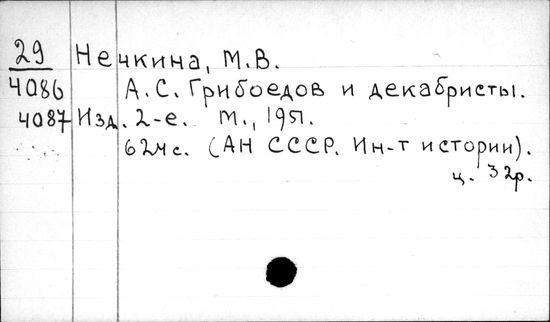 29 Нечкина, М.В.
4086 А.С. Грибоедов и декабристы.
4087 Изд. 2-е. М., 1951.
624 с. (АН СССР. Ин-т истории).
ц. 32р.